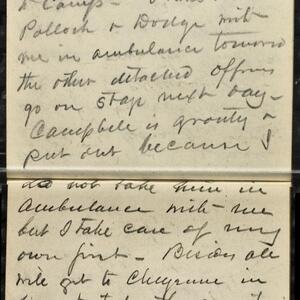 to Camp -
Pollock & Dodge with
me in ambulance tomorrow
the other detached officers
go on stage next day -
Campbell is grouty &
put out because I
do not take him in
ambulance with me
but I take care of my
own first - Besides all
will get to Cheyenne in